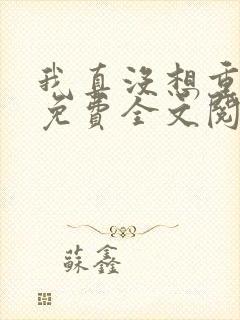 我真沒想重
免費全文閱
蘇鑫